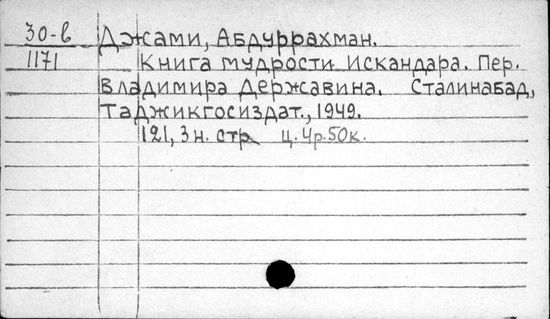 30-в Джами, Абдуррахман.
1171 Книга мудрости Искандара. Пер.
Владимира Державина. Сталинабад,
Таджикгосиздат., 1949.
121, 3 н. стр. ц. 4р.50к.